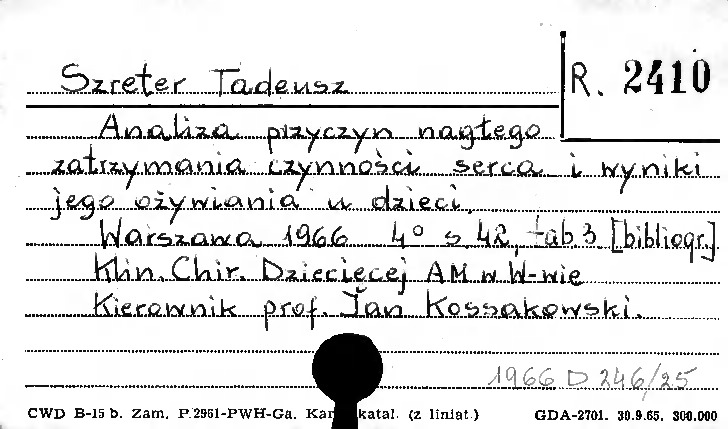 Szreter Tadeusz
R. 2410
Analiza przyczyn nagłego
zatrzymania czynności serca i wyniki
jego ożywiania u dzieci.
Warszawa 1966 4° s. 42, tab. 3 [bibliogr.]
Klin. Chir. Dziecięcej AM w W-wie
Kierownik prof. Jan Kossakowski.
1966 D 246/25
CWD B-15 b. Zam. P.2961-PWH-Ga. katal. (z liniat.) GDA-2701. 30.9.65. 300.000